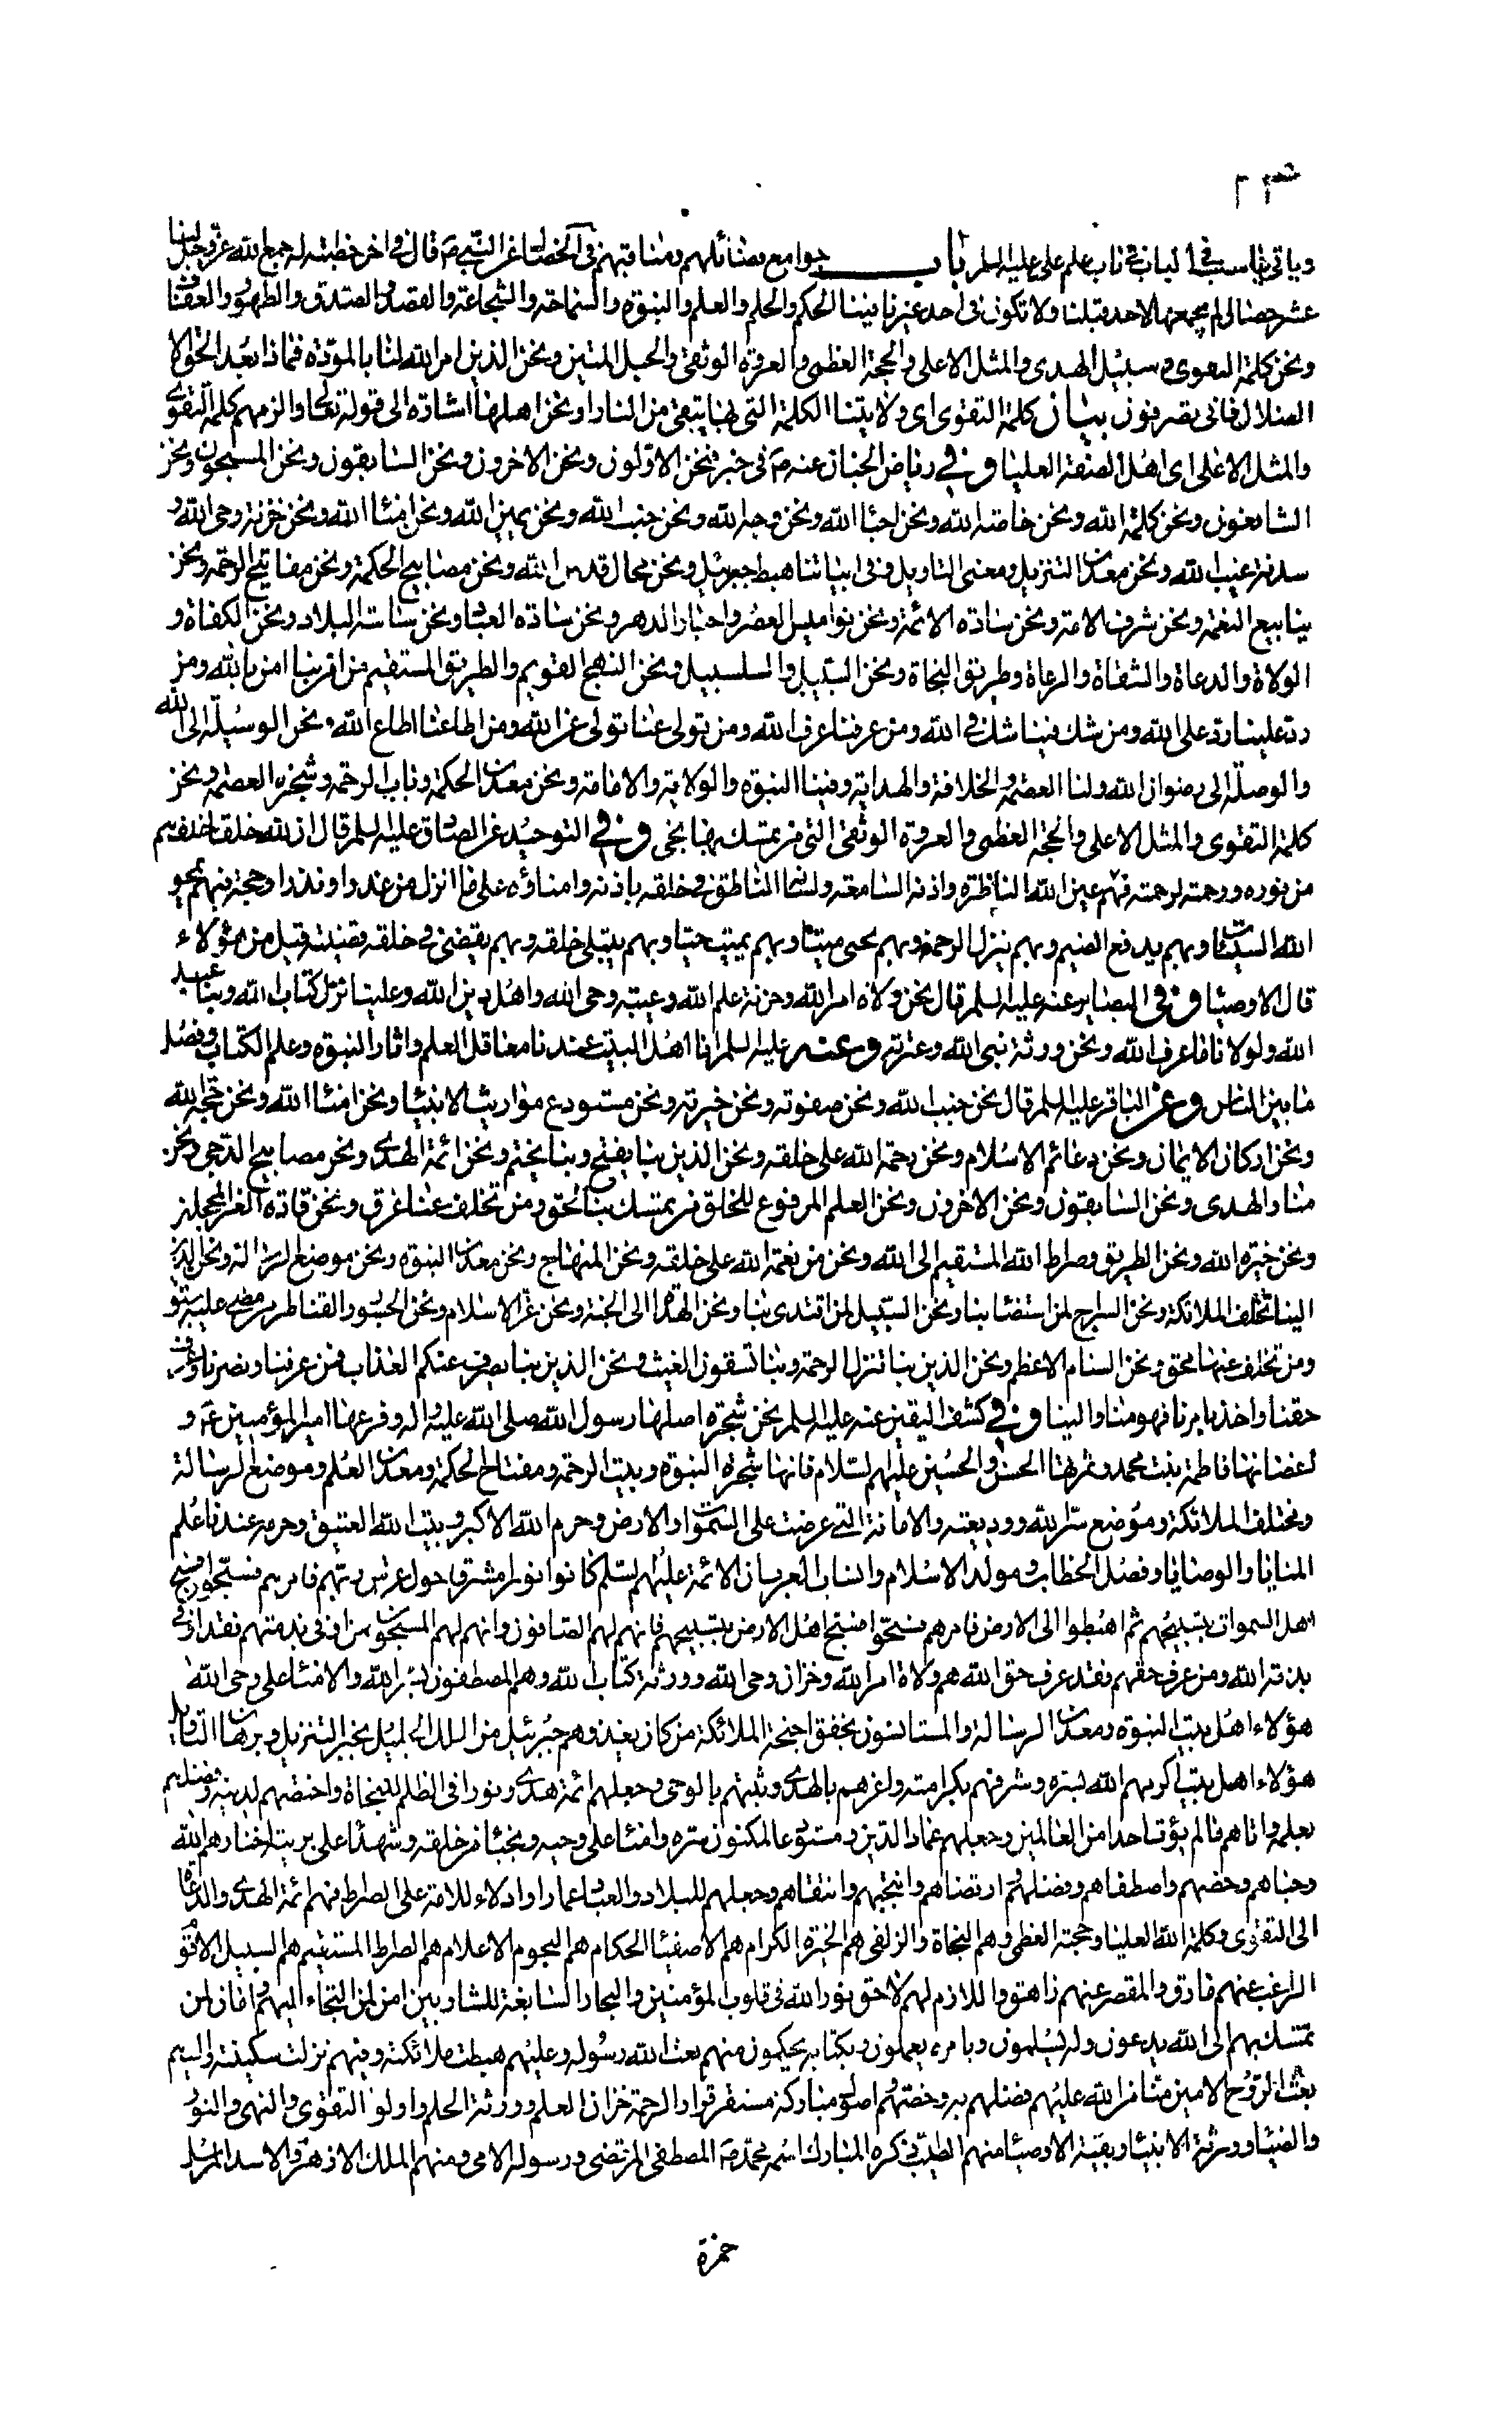 وياتي ما يناسب في الباب في باب علم علي عليه السلم باب جوامع فضائلهم ومناقبهم في الخصال عن النبي ص قال في اخر خطبته له جمع الله عز وجل لنا
عشر خصال لم يجمعها لاحد قبلنا ولا تكون في احد غيرنا فينا الحكم والحلم والعلم والنبوة والسماحة والشجاعة والقصد والصدق والطهور والعفاف
ونحن كلمة التقوى وسبيل الهدى والمثل الاعلى والحجة العظمى والعروة الوثقى والحبل المتين ونحن الذين امر الله لنا بالمودة فماذا بعد الحق الا
الضلال فاني تصرفون بيان كلمة التقوى اي ولايتنا الكلمة التي بها يتقى من النار او نحن اهلها اشارة الى قوله تعالى والزمهم كلمة التقوى
والمثل الاعلى اي اهل الصفة العليا وفي رياض الجنان عنه ص في خبر فنحن الاولون ونحن الاخرون ونحن السابقون ونحن المسبحون ونحن
الشافعون ونحن كلمة الله ونحن خاصة الله ونحن احباء الله ونحن وجه الله ونحن جنب الله ونحن يمين الله ونحن امناء الله ونحن خزنة وحي الله و
سدنة غيب الله ونحن معدن التنزيل ومعنى التاويل وفي ابياتنا هبط جبرئيل ونحن محال قدس الله ونحن مصابيح الحكمة ونحن مفاتيح الرحمة ونحن
ينابيع النعمة ونحن شرف الامة ونحن سادة الائمة ونحن نواميس العصر واحبار الدهر ونحن سادة العباد ونحن ساسة البلاد ونحن الكفاة و
الولاة والدعاة والسقاة والرعاة وطريق النجاة ونحن السبيل والسلسبيل ونحن النهج القويم والطريق المستقيم من امن بنا امن بالله ومن
رد علينا رد على الله ومن شك فينا شك في الله ومن عرفنا عرف الله ومن تولى عنا تولى عن الله ومن اطاعنا اطاع الله ونحن الوسيلة الى الله
والوصلة الى رضوان الله ولنا العصمة والخلافة والهداية وفينا النبوة والولاية والامامة ونحن معدن الحكمة وباب الرحمة وشجرة العصمة ونحن
كلمة التقوى والمثل الاعلى والحجة العظمى والعروة الوثقى التي من تمسك بها نجى وفي التوحيد عن الصادق عليه السلم قال ان لله خلقا خلقهم
من نوره ورحمته لرحمته فهم عين الله الناظرة واذنه السامعة ولسانه الناطق في خلقه باذنه وامناؤه على ما انزل من عذر او نذر او حجة فبهم يمحو
الله السيئات وبهم يدفع الضيم وبهم ينزل الرحمة وبهم يحيى ميتا وبهم يميت حيا وبهم يبتلي خلقه وبهم يقضي في خلقه قضيته قيل من هؤلاء
قال الاوصياء وفي البصاير عنه عليه السلم قال نحن ولاة امر الله وخزنة علم الله وعيبة وحي الله واهل دين الله وعلينا نزل كتاب الله وبنا عبد
الله ولولانا ما عرف الله ونحن ورثة نبي الله وعترته وعنه عليه السلم انا اهل البيت عندنا معاقل العلم واثار النبوة وعلم الكتاب وفصل
ما بين الناس وعن الباقر عليه السلم قال نحن جنب الله ونحن صفوته ونحن خيرته ونحن مستودع مواريث الانبياء ونحن امناء الله ونحن حجة الله
ونحن اركان الايمان ونحن دعائم الاسلام ونحن رحمة الله على خلقه ونحن الذين بنا يفتح وبنا يختم ونحن ائمة الهدى ونحن مصابيح الدجى ونحن
منار الهدى ونحن السابقون ونحن الاخرون ونحن العلم المرفوع للخلق من تمسك بنا لحق ومن تخلف عنا غرق ونحن قادة الغر المحجلين
ونحن خيرة الله ونحن الطريق وصراط الله المستقيم الى الله ونحن من نعمة الله على خلقه ونحن المنهاج ونحن معدن النبوة ونحن موضع الرسالة ونحن الذين
الينا تختلف الملائكة ونحن السراج لمن استضاء بنا ونحن السبيل لمن اقتدى بنا ونحن الهداة الى الجنة ونحن عز الاسلام ونحن الجسور القناطر من مضى عليها سبق
ومن تخلف عنها محق ونحن السنام الاعظم ونحن الذين بنا تنزل الرحمة وبنا تسقون الغيث ونحن الذين بنا يصرف عنكم العذاب فمن عرفنا ونصرنا وعرف
حقنا واخذ بامرنا فهو منا والينا وفي كشف اليقين عنه عليه السلم نحن شجرة اصلها رسول الله صلى الله عليه واله وفرعها امير المؤمنين ع و
اغصانها فاطمة بنت محمد وثمرتها الحسن والحسين عليهم السلام فانها شجرة النبوة وبيت الرحمة ومفتاح الحكمة ومعدن العلم وموضع الرسالة
ومختلف الملائكة وموضع سر الله ووديعته والامانة التي عرضت على السموات والارض وحرم الله الاكبر وبيت الله العتيق وحرمه عندنا علم
المنايا والوصايا وفصل الخطاب ومولد الاسلام وانساب العرب ان الائمة عليهم السلم كانوا نورا مشرقا حول عرش ربهم فامرهم فسبحوا فسبح
اهل السموات بتسبيحهم ثم اهبطوا الى الارض فامرهم فسبحوا فسبح اهل الارض بتسبيحهم فانهم لهم الصافون وانهم لهم المسبحون من اوفى بذمتهم فقد اوفى
بذمة الله ومن عرف حقهم فقد عرف حق الله هم ولاة امر الله وخزان وحي الله وورثة كتاب الله وهم المصطفون لسر الله والامناء على وحي الله
هؤلاء اهل بيت النبوة ومعدن الرسالة والمستانسون بخفق اجنحة الملائكة من كان يغذوهم جبرئيل من الملك الجليل بخبر التنزيل وبرهان التاويل
هؤلاء اهل بيت اكرمهم الله بسره وشرفهم بكرامته واعزهم بالهدى وثبتهم بالوحي وجعلهم ائمة هدى ونورا في الظلم للنجاة واختصهم لدينه وفضلهم
بعلمه واتاهم ما لم يؤت احدا من العالمين وجعلهم عمادا لدينه ومستودعا لمكنون سره وامناء على وحيه ونجباء من خلقه وشهداء على بريته اختارهم الله
وحباهم وخصهم واصطفاهم وفضلهم وارتضاهم وانتجبهم وانتقاهم وجعلهم للبلاد والعباد عمارا وادلاء للامة على الصراط فهم ائمة الهدى والدعاة
الى التقوى وكلمة الله العليا وحجته العظمى وهم النجاة والزلفى هم الخيرة الكرام هم الاصفياء الحكام هم النجوم الاعلام هم الصراط المستقيم هم السبيل الاقوم
الراغب عنهم مارق والمقصر عنهم زاهق واللازم لهم لاحق نور الله في قلوب المؤمنين والبحار السابغة للشاربين امن لمن التجاء اليهم وامان لمن
تمسك بهم الى الله يدعون وله يسلمون وبامره يعملون وبكتابه يحكمون منهم بعث الله رسوله وعليهم هبطت ملائكته وفيهم نزلت سكينته واليهم
بعث الروح الامين منا من الله عليهم فضلهم به وخصهم اصول مباركة مستقر قرار الرحمة خزان العلم وورثة الحلم واولوا التقوى والنهى والنور
والضياء وورثة الانبياء وبقية الاوصياء منهم الطيب ذكره المبارك اسمه محمد ص المصطفى المرتضى ورسوله الامي ومنهم الملك الازهر والاسد المرسل
حمزة